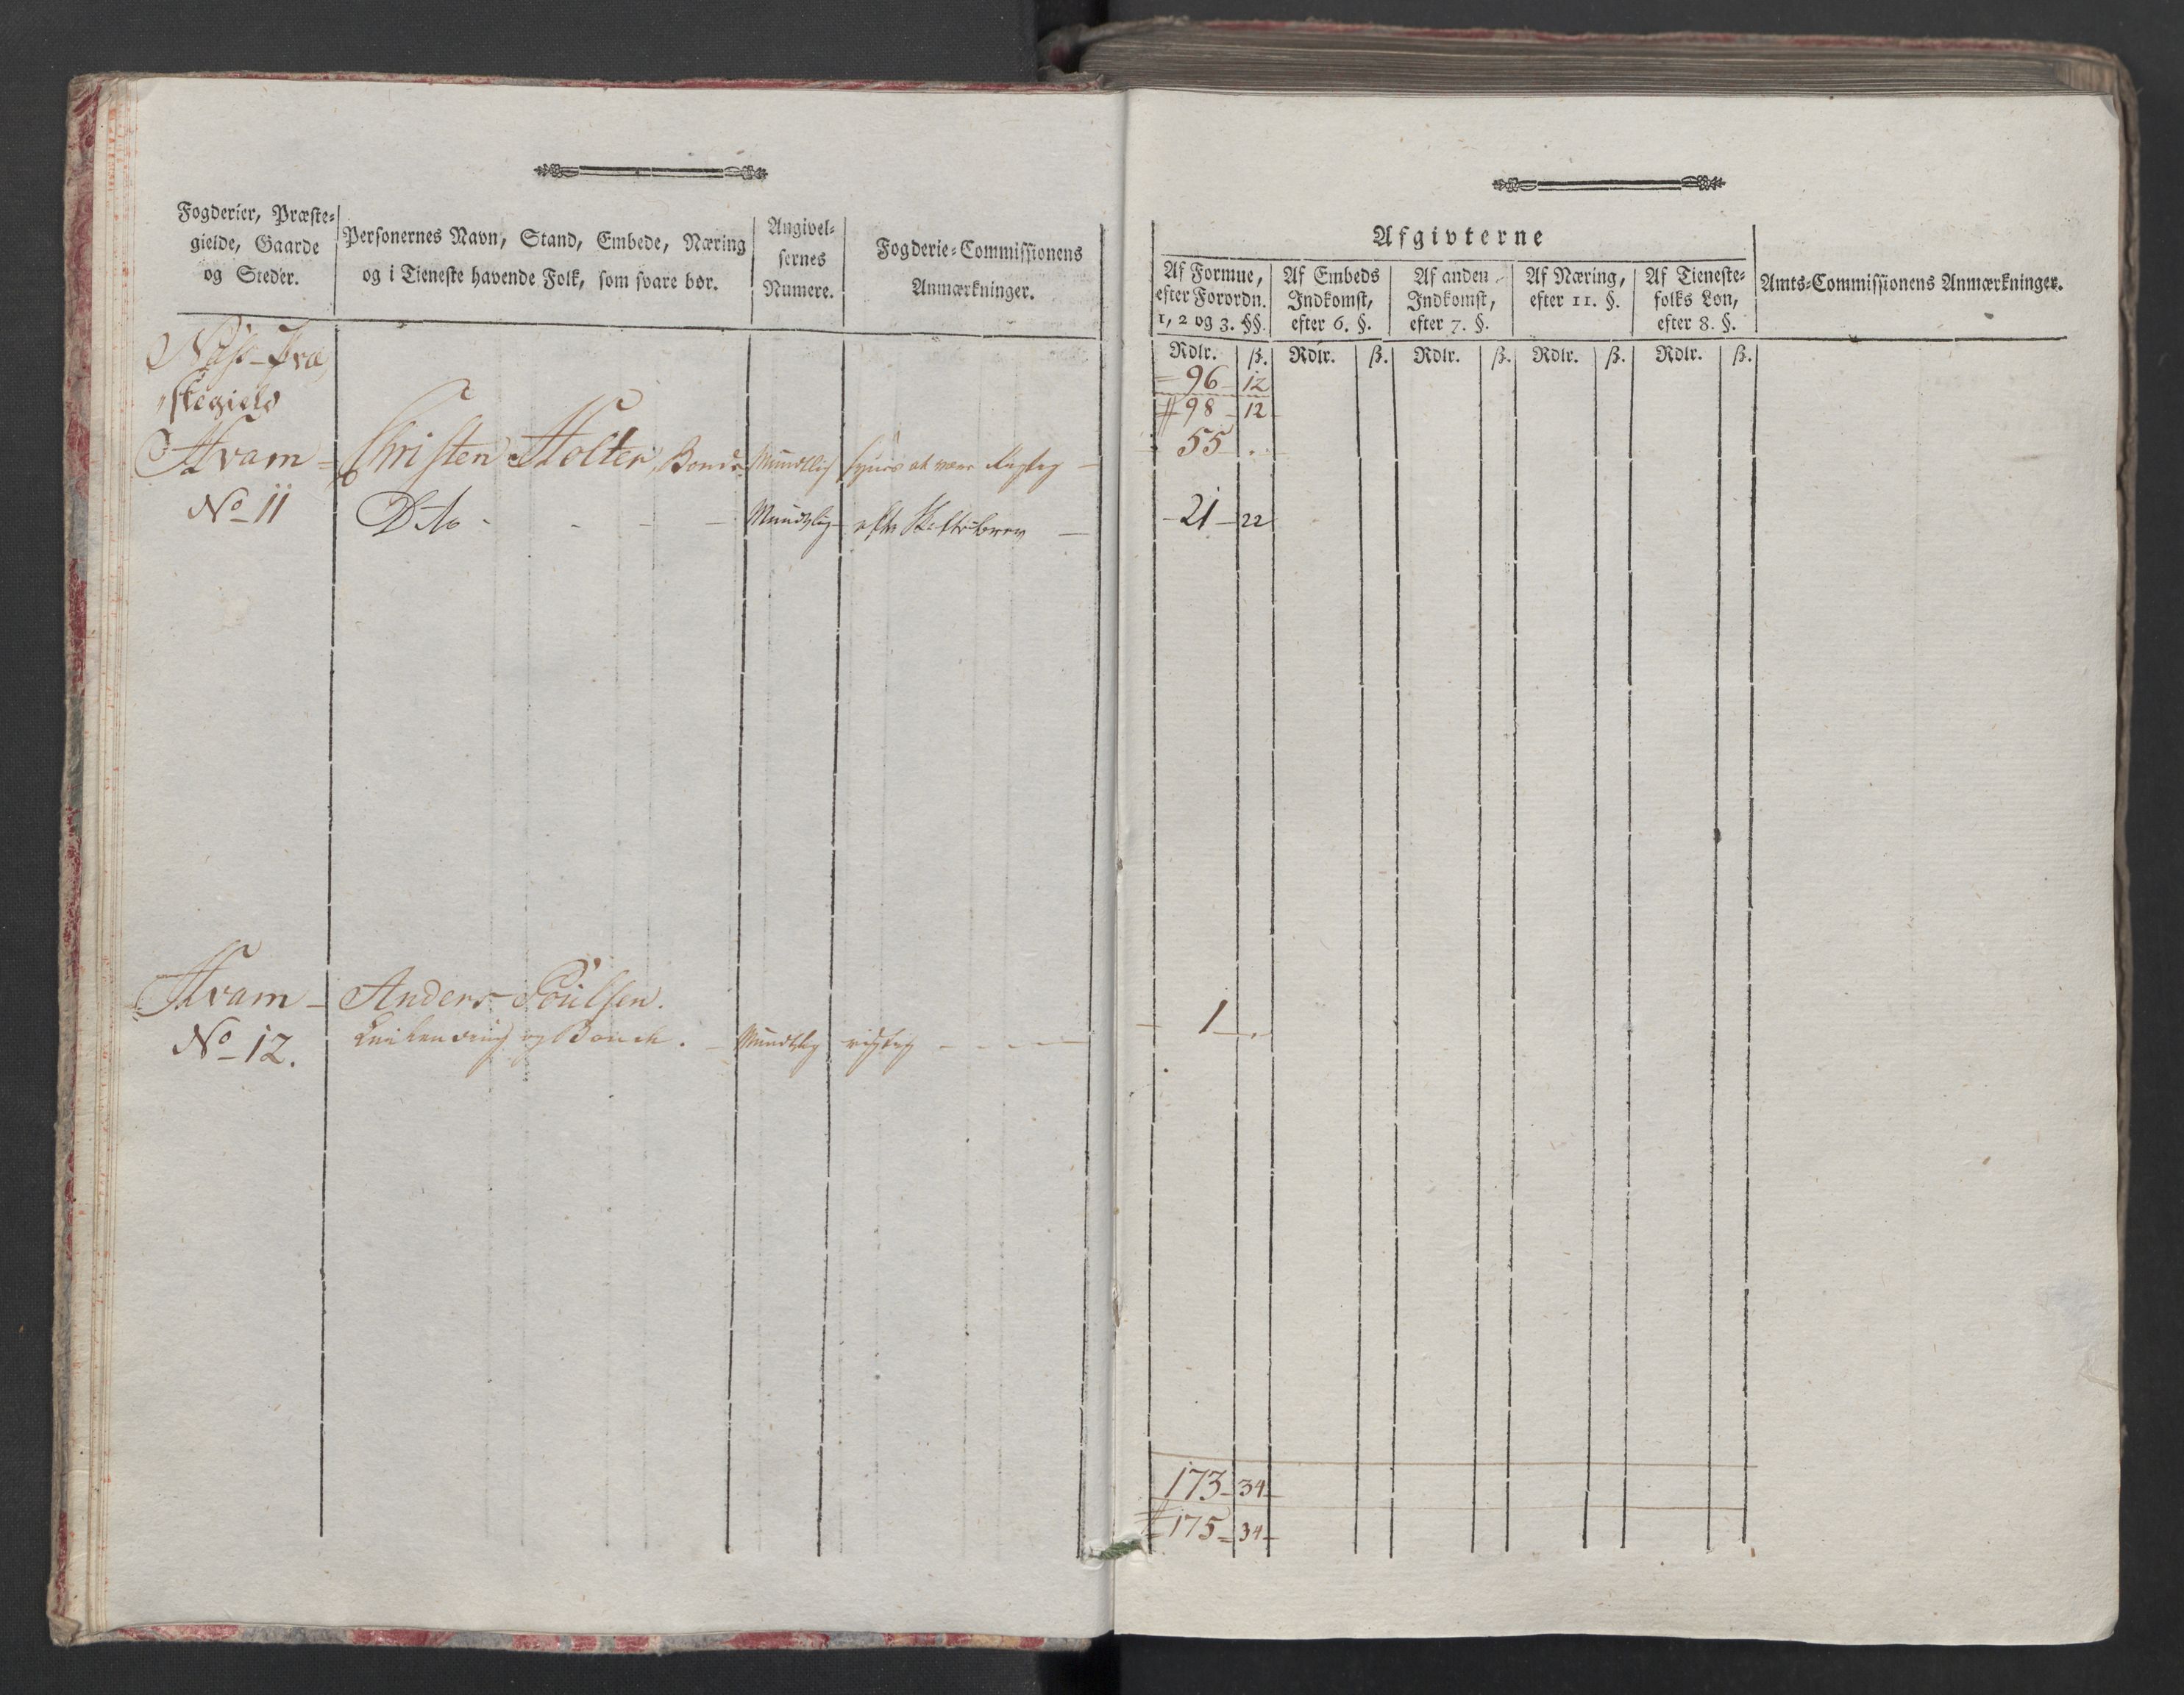 Fogderier, Præste-
gielde, Gaarde
og Steder.
Personernes Navn, Stand, Embede, Næring
og i Tieneste havende Folk, som svare bør.
Angivel-
sernes
Numere.
Fogderie-Commissionens
Anmærkninger.
Næss-Præ
stegield
Hvam Christen Holter, Bonde Mundtlig synes at være rigtig
No 11 Dito - - - - Mundtlig efter Skiftebrev
Hvam Anders Poulsen.
No 12. og Bonde. Mundtlig rigtig
Afgivterne
Af Formue,
efter Forordn.
1, 2 og 3. §§.
Af Embeds
Indkomst,
efter 6. §.
Af anden
Indkomst,
efter 7. §.
Af Næring,
efter 11. §.
Af Tieneste-
folks Løn,
efter 8. §.
Amts-Commissionens Anmærkninger.
Rdlr. ß. Rdlr. ß. Rdlr. ß. Rdlr. ß. Rdlr. ß.
96 12
98 12
55 .
21 22
1 .
173 34
175 34